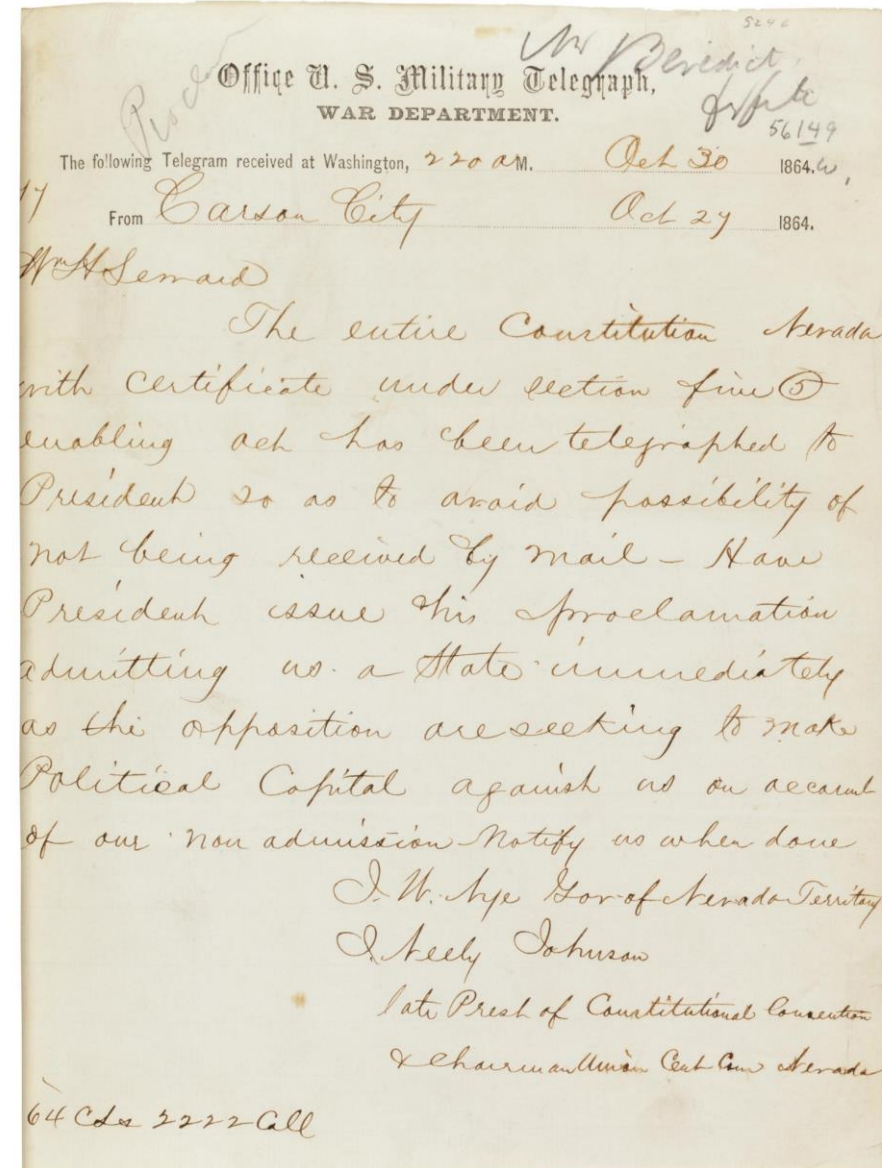 5246
Mr Benedict
for file
Office U. S. Military Telegraph,
WAR DEPARTMENT.
56149
The following Telegram received at Washington, 2 20 a M. Oct 30 1864.
17
From Carson City Oct 27 1864.
Wm H Seward
The entire Constitution Nevada
with certificate under section five (5)
enabling act has been telegraphed to
President so as to avoid possibility of
not being received by mail - Have
President issue his proclamation
admitting us a State immediately
as the opposition are seeking to make
Political Capital against us on account
of our non admission Notify us when done
J. W. Nye Gov of Nevada Territory
J. Neely Johnson
late Prest of Constitutional Convention
& Chairman Union Cent Com Nevada
64 Cols 2222 Coll